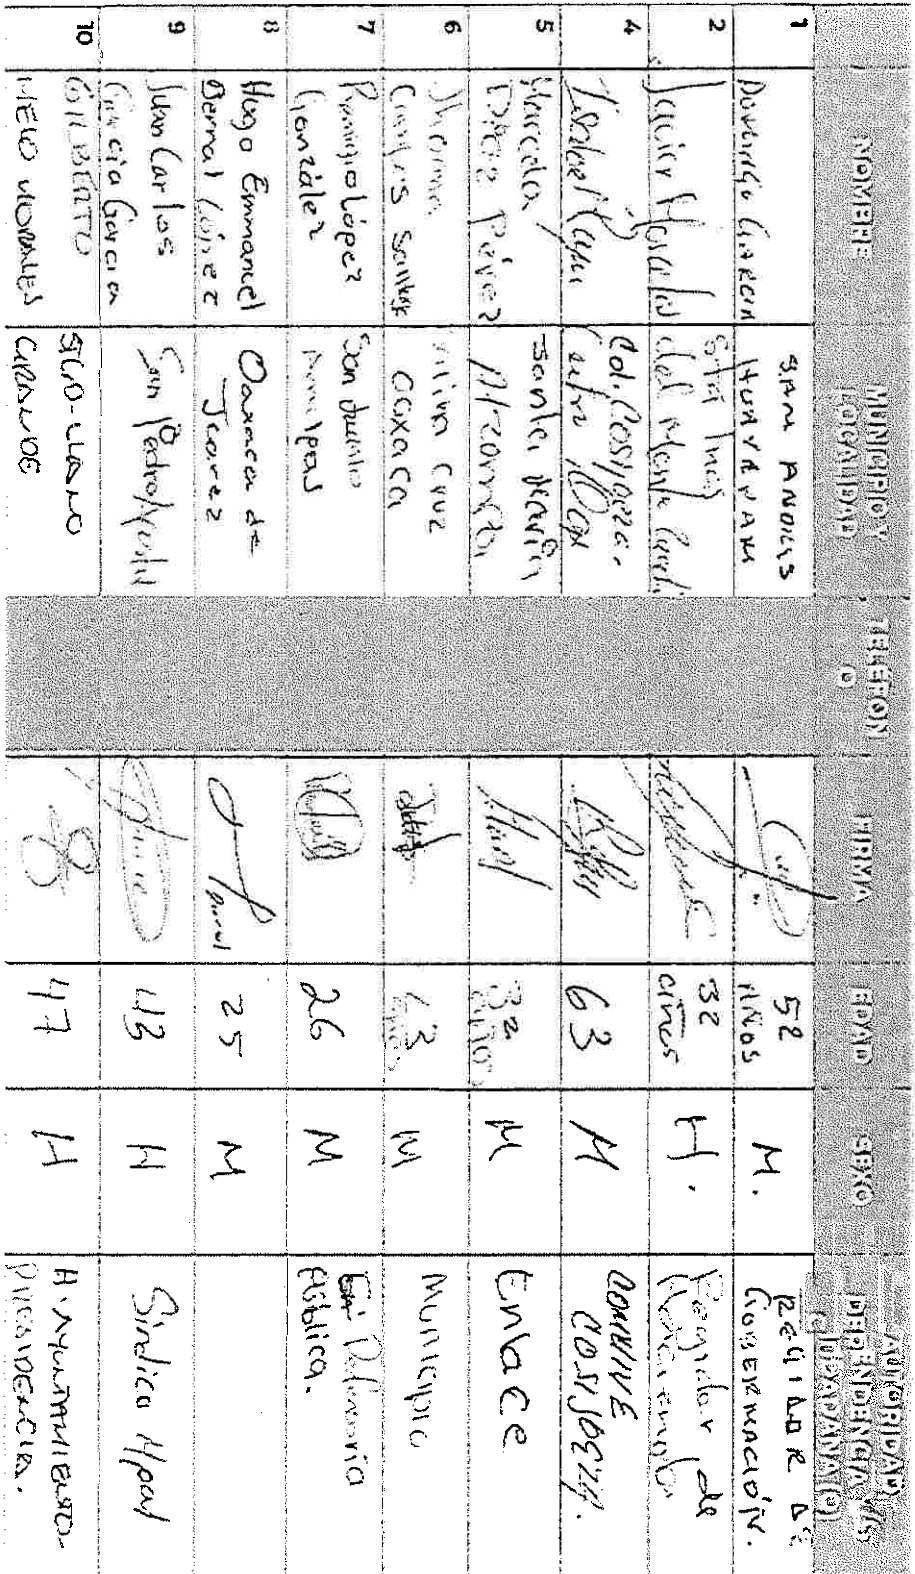 NOMBRE
MUNICIPIO Y
LOCALIDAD
TELÉFON
O
FIRMA
EDAD
SEXO
AUTORIDAD,
DEPENDENCIA Y/O
CIUDADANA(O)
1
DOMINGO GARCIA
SAN ANDRES
HUAYAPAM
52
AÑOS
M.
REGIDOR DE
GOBERNACIÓN.
2
Javier
Sta Ines
del Monte
32
años
H.
Regidor de
4
Isabel
Col. Cosijoeza.
Centro
63
M
COMVIVE
COSIJOEZA.
5
Marcela
Pérez
Santa María
Atzompa
32
M
Enlace
6
Santa Cruz
Oaxaca
M
Municipio
7
Remigio López
González
San Jacinto
Amilpas
26
M
Defensoría
Pública.
8
Hugo Emmanuel
Bernal López
Oaxaca de
Juarez
25
M
9
Juan Carlos
García García
San Pedro
43
H
Sindico Mpal
10
GILBERTO
MELO MORALES
STGO-LLANO
GRANDE
47
H
H. AYUNTAMIENTO-
PRESIDENCIA.